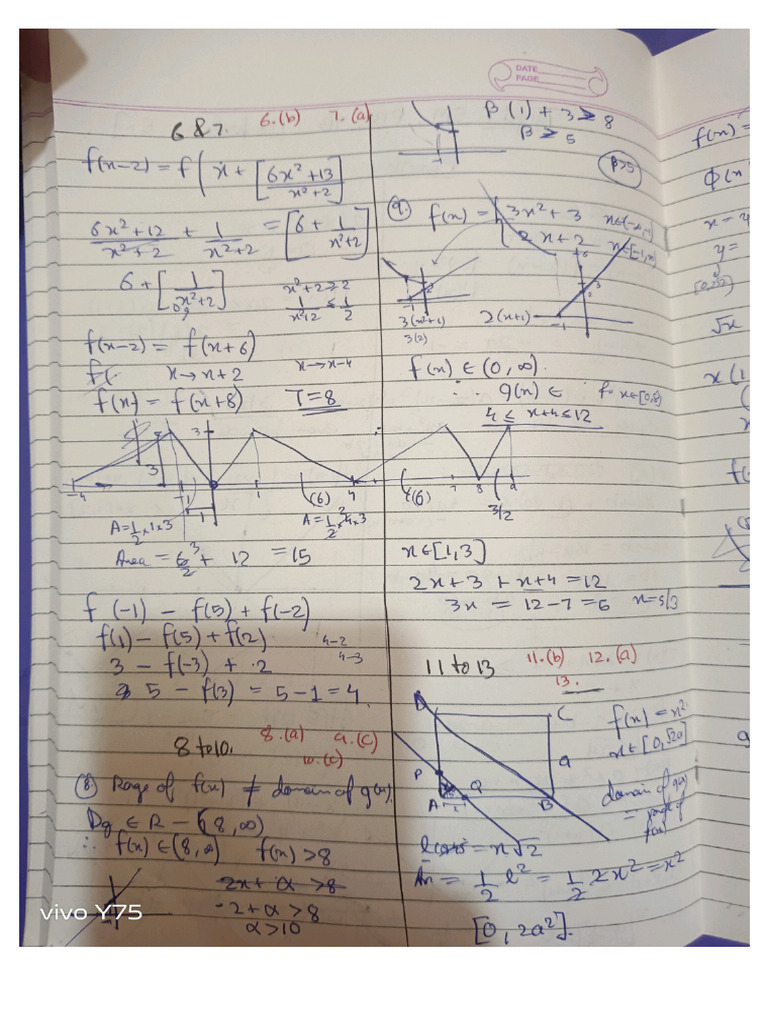 DATE
PAGE
6 & 7. 6.(b) 7.(a)
f(x-2) = f(x + [6x²+13 / x²+2]
6x²+12 / x²+2 + 1 / x²+2 = [6 + 1 / x²+2]
6 + [1 / x²+2] x²+2 ≥ 2
1 / x²+2 ≤ 1 / 2
f(x-2) = f(x+6)
f( x→x+2 x→x-4
f(x) = f(x+8) T=8
3
3
-4 -1 1 (6) 4
1
A=1/2×1×3 A=1/2×4×3
Area = 6/2 3 + 12 = 15
f(-1) - f(5) + f(-2)
f(1) - f(5) + f(2) 4-2
3 - f(-3) + 2 4-3
5 - f(3) = 5-1 = 4.
8 to 10. 8.(a) 9.(c)
10.(c)
(8) Rage of f(x) ≠ domain of g(x).
Dg ∈ R - (8, ∞)
∴ f(x) ∈ (8, ∞) f(x) > 8
2x + α > 8
-2 + α > 8
α > 10
-1
β(1) + 3 ≥ 8
β ≥ 5
β>5
-1
(9.) f(x) = [3x²+3 x∈(-∞,-1)
2x+2 x∈[-1,∞)
6
3
2
2
-1
3(x²+1) 2(x+1) -1
3(2)
f(x) ∈ (0, ∞).
∴ g(x) ∈ for x∈[0,8)
4 ≤ x+4 ≤ 12
(6) 7 8 9
3/2
x∈[1,3]
2x+3 + x+4 = 12
3x = 12-7 = 6 x=5/3
11 to 13 11.(b) 12.(a)
13.
D C f(x) = x²
x∈[0, √2a]
a
P
Q
A B
domain of g(x)
= range of
f(x)
= x√2
Ar = 1/2 l² = 1/2 2x² = x²
[0, 2a²].
f(x) =
φ(x
x = y
y =
√x
x(1
f(
vivo Y75